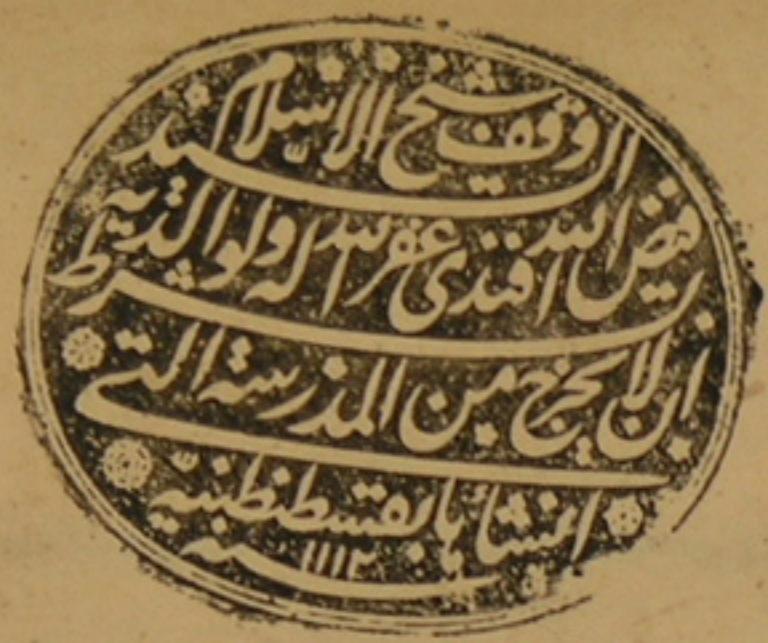 وقف شيخ الاسلام السيد
فيض الله افندى غفر الله له ولوالديه بشرط
ان لا يخرج من المدرسة التي
انشأها بقسطنطينية
سنة ١١١٢